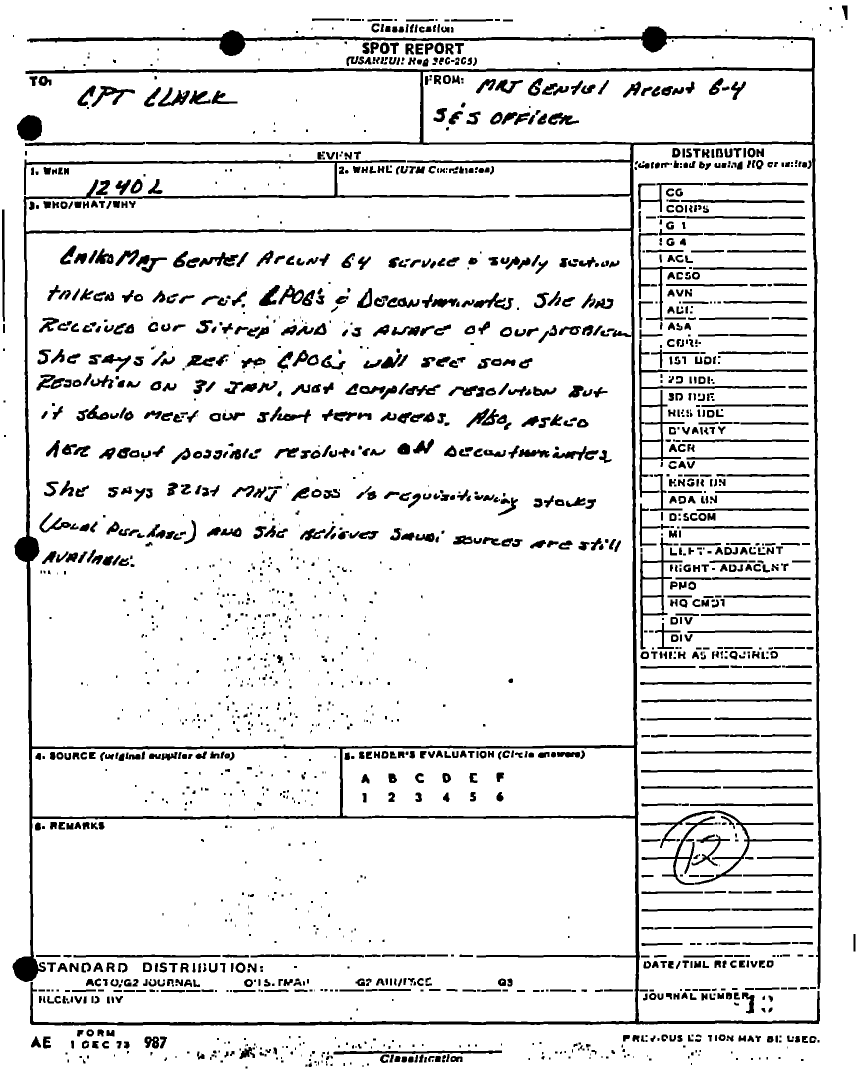 Classification
SPOT REPORT
(USAREUR Reg 380-205)
TO:
CPT CLARK
FROM: MAJ GENTEL ARCENT G-4
S&S OFFICER
EVENT
1. WHEN
1240 L
2. WHERE (UTM Coordinates)
3. WHO/WHAT/WHY
MAJ GENTEL ARCENT G4 SERVICE & SUPPLY SECTION
TALKED TO her ref. CPOG's & DECONTAMINATES. SHE HAS
RECEIVED OUR SITREP AND IS AWARE OF OUR problem
SHE SAYS IN REF TO CPOG's, will SEE SOME
RESOLUTION ON 31 JAN, NOT COMPLETE RESOLUTION BUT
it should MEET OUR short term NEEDS. Also, ASKED
HER ABOUT possible resolution ON DECONTAMINATES
SHE SAYS 321st MAJ ROSS is requisitioning stocks
(LOCAL PURCHASE) AND SHE BELIEVES SAUDI SOURCES ARE still
AVAILABLE.
4. SOURCE (original supplier of info)
5. SENDER'S EVALUATION (Circle answers)
A B C D E F
1 2 3 4 5 6
6. REMARKS
STANDARD DISTRIBUTION:
ACTO/G2 JOURNAL G2 AIR/TACC G3
RECEIVED BY
DISTRIBUTION
(determined by using HQ or units)
CG
CORPS
G 1
G 4
ACL
AVN
ASA
1ST BDE
2D BDE
3D BDE
RES BDE
DIVARTY
ACR
CAV
ENGR BN
ADA BN
DISCOM
MI
LEFT-ADJACENT
RIGHT-ADJACENT
PMO
HQ CMDT
DIV
DIV
OTHER AS REQUIRED
12
DATE/TIME RECEIVED
JOURNAL NUMBER
AE FORM 1 DEC 73 987
PREVIOUS EDITION MAY BE USED.
Classification